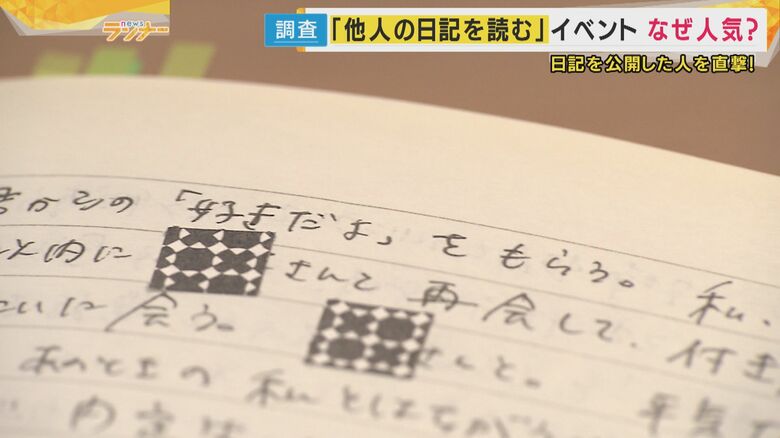 news
ランナー
調査 「他人の日記を読む」イベント なぜ人気?
日記を公開した人を直撃!
からの「好きだよ」をもらう。私、
以内に さんと再会して、付き
に会う。 さんと。平気
あのときの私としては
内容は